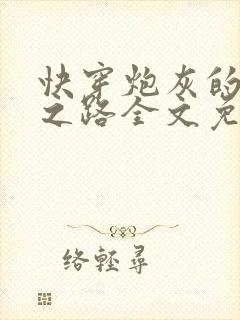 快穿炮灰的
之路全文免
络轻寻